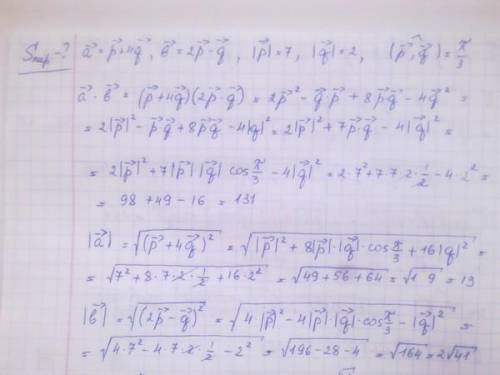 Sпар-? a⃗=p⃗+4q⃗, b⃗=2p⃗-q⃗, |p⃗|=7, |q⃗|=2, (p⃗,^q⃗)=π/3
a⃗·b⃗=(p⃗+4q⃗)(2p⃗-q⃗)=2p⃗²-q⃗·p⃗+8p⃗q⃗-4q⃗²=
=2|p⃗|²-p⃗q⃗+8p⃗q⃗-4|q|²=2|p⃗|²+7p⃗·q⃗-4|q⃗|²=
=2|p⃗|²+7|p⃗||q⃗|cos π/3-4|q⃗|²=2·7²+7·7·2·1/2-4·2²=
=98+49-16=131
|a⃗|=√((p⃗+4q⃗)²)=√(|p⃗|²+8|p⃗|·|q⃗|·cos π/3+16|q|²)=
=√(7²+8·7·2·1/2+16·2²)=√(49+56+64)=√(1 9)=13
|b⃗|=√((2p⃗-q⃗)²)=√(4·|p⃗|²-4|p⃗|·|q⃗|·cos π/3-|q⃗|²)=
=√(4·7²-4·7·2·1/2-2²)=√(196-28-4)=√164=2√41